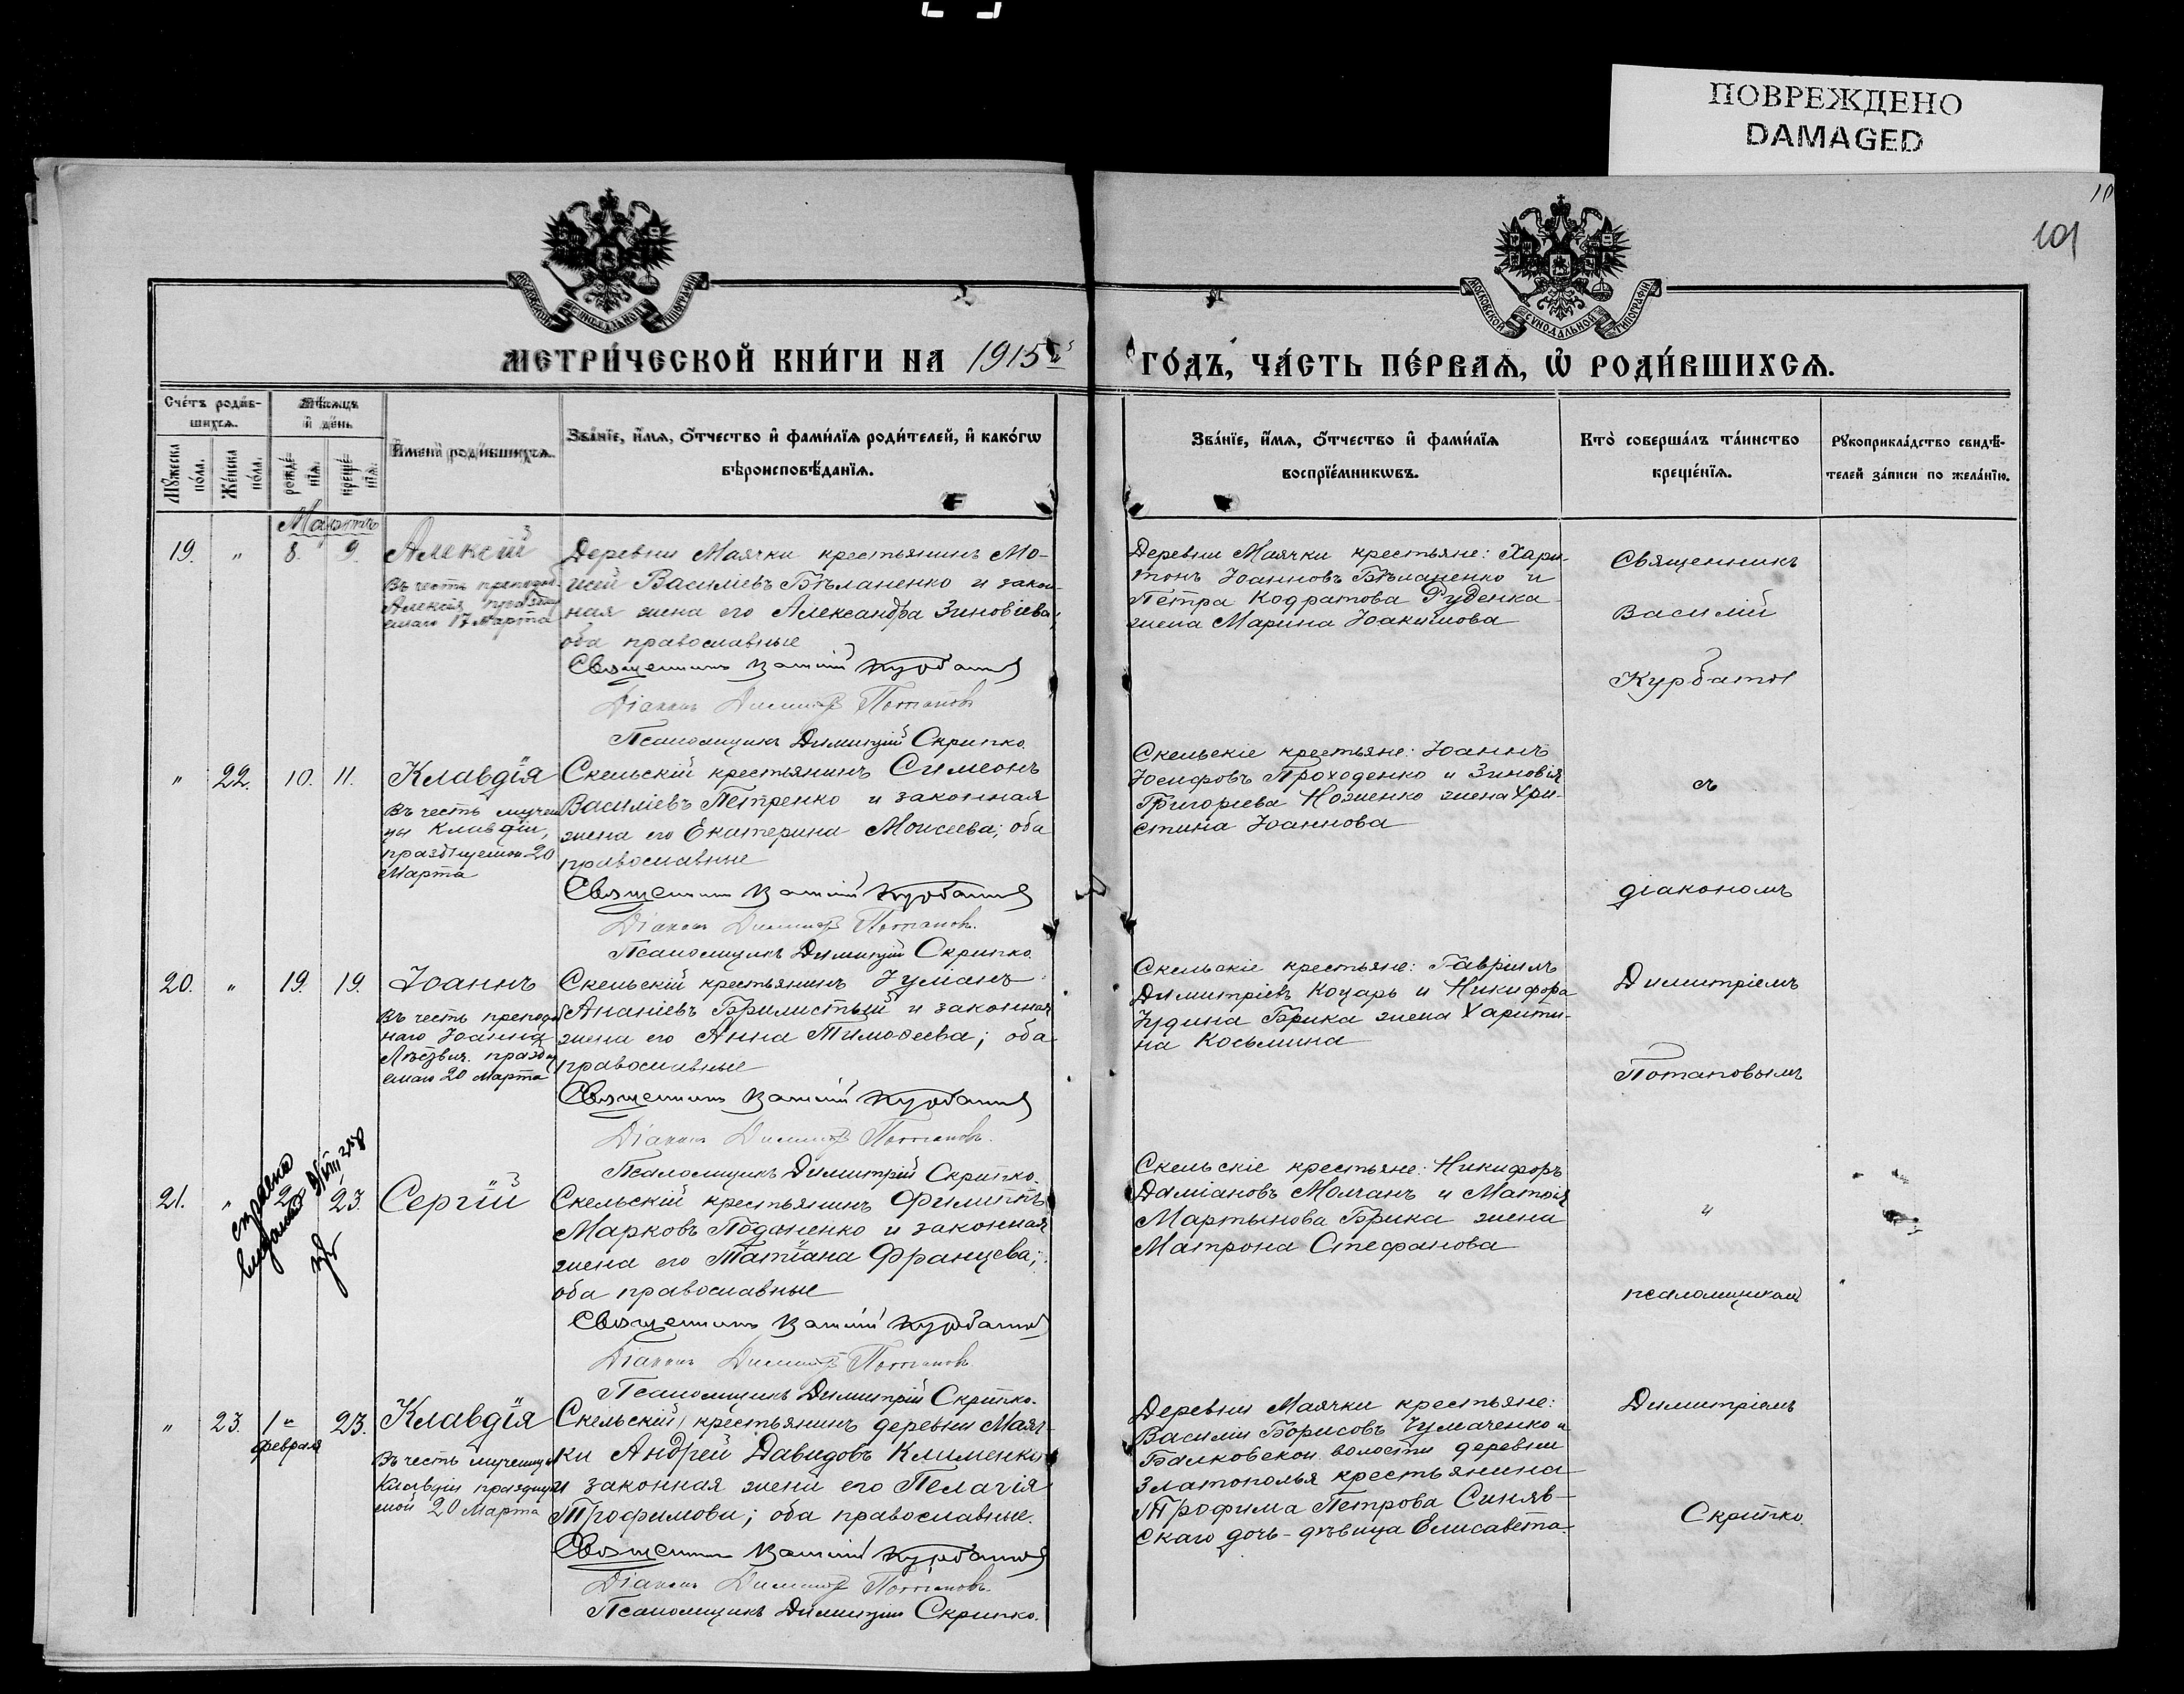 ПОВРЕЖДЕНО
DAMAGED
101
МОСКОВСКОЙ СУНОДАЛЬНОЙ ТИПОГРАФІИ
МОСКОВСКОЙ СУНОДАЛЬНОЙ ТИПОГРАФІИ
МЕТРИ́ЧЕСКОЙ КНИ́ГИ НА 1915й
ГО́ДЪ, ЧА́СТЬ ПЕ́РВАѦ, Ѡ҆ РОДИ́ВШИХСѦ.
Сче́тъ роди́в-
шихсѧ.
Мѣ́сѧцъ
и҆ де́нь
Мꙋ́жеска по́ла.
Же́нска по́ла.
рожде́-нїѧ.
креще́-нїѧ.
И҆мена̀ роди́вшихсѧ.
Зва́нїе, и҆́мѧ, ѻ҆́тчество и҆ фами́лїѧ роди́телей, и҆ како́гѡ
вѣроисповѣ́данїѧ.
Зва́нїе, и҆́мѧ, ѻ҆́тчество и҆ фами́лїѧ
воспрїе́мникѡвъ.
Кто̀ соверша́лъ та́инство
креще́нїѧ.
Рꙋкоприкла́дство свидѣ́-
телей за́писи по жела́нїю.
Мартъ
19. " 8. 9. Алексій
Въ честь преподоб.
Алексія праздну
емаго 17 Марта
Деревни Маячки крестьянинъ Мо-
исей Василіевъ Бѣланенко и закон-
ная жена его Александра Зиновіева;
оба православные
Священникъ Василій Курбатов
Діаконъ Димитрій Потаповъ
Псаломщикъ Димитрій Скрипко.
Деревни Маячки крестьяне: Хари-
тонъ Іоанновъ Бѣланенко и
Петра Кодратова Руденка
жена Марина Іоакимова
Священникъ
Василій
Курбатов
" 22. 10. 11. Клавдія
Въ честь мучени
цы Клавдіи,
празднуемой 20
Марта
Скельскій крестьянинъ Симеонъ
Василіевъ Петренко и законная
жена его Екатерина Моисеева; оба
православные
Священникъ Василій Курбатов
Діаконъ Димитрій Потаповъ.
Псаломщикъ Димитрій Скрипко.
Скельскіе крестьяне: Іоаннъ
Іосифовъ Проходенко и Зиновія
Григоріева Ноженко жена Хри-
стина Іоаннова
съ
діакономъ
20. " 19. 19. Іоаннъ
Въ честь преподоб
наго Іоанна
Лѣствич. праздну
емаго 20 Марта
Скельскій крестьянинъ Іуліанъ
Ананіевъ Брилистый и законная
жена его Анна Тимоѳеева; оба
православные
Священникъ Василій Курбатов
Діаконъ Димитрій Потаповъ.
Псаломщикъ Димитрій Скрипко.
Скельскіе крестьяне: Гавріилъ
Димитріевъ Коцарь и Никифора
Іудина Брика жена Харити-
на Косьмина
Димитріемъ
Потаповымъ
21. " 23. Сергій
справка
выдана
Скельскій крестьянинъ Филиппъ
Марковъ Подоненко и законная
жена его Татіана Францева;
оба православные
Священникъ Василій Курбатов
Діаконъ Димитрій Потаповъ
Псаломщикъ Димитрій Скрипко.
Скельскіе крестьяне: Никифоръ
Даміановъ Молчанъ и Матѳія
Мартынова Брика жена
Матрона Стефанова
и
псаломщикомъ
" 23. 1го февраля 23. Клавдія
Въ честь мученицы
Клавдіи праздну
мой 20 Марта
Скельскій, крестьянинъ деревни Маяч-
ки Андрей Давидовъ Клименко
и законная жена его Пелагія
Трофимова; оба православные.
Священникъ Василій Курбатов
Діаконъ Димитрій Потаповъ.
Псаломщикъ Димитрій Скрипко.
Деревни Маячки крестьяне:
Василій Борисовъ Чумаченко и
Балковской волости деревни
Златополья крестьянина
Трофима Петрова Синяв-
скаго дочь-дѣвица Елисавета
Димитріемъ
Скрипко.